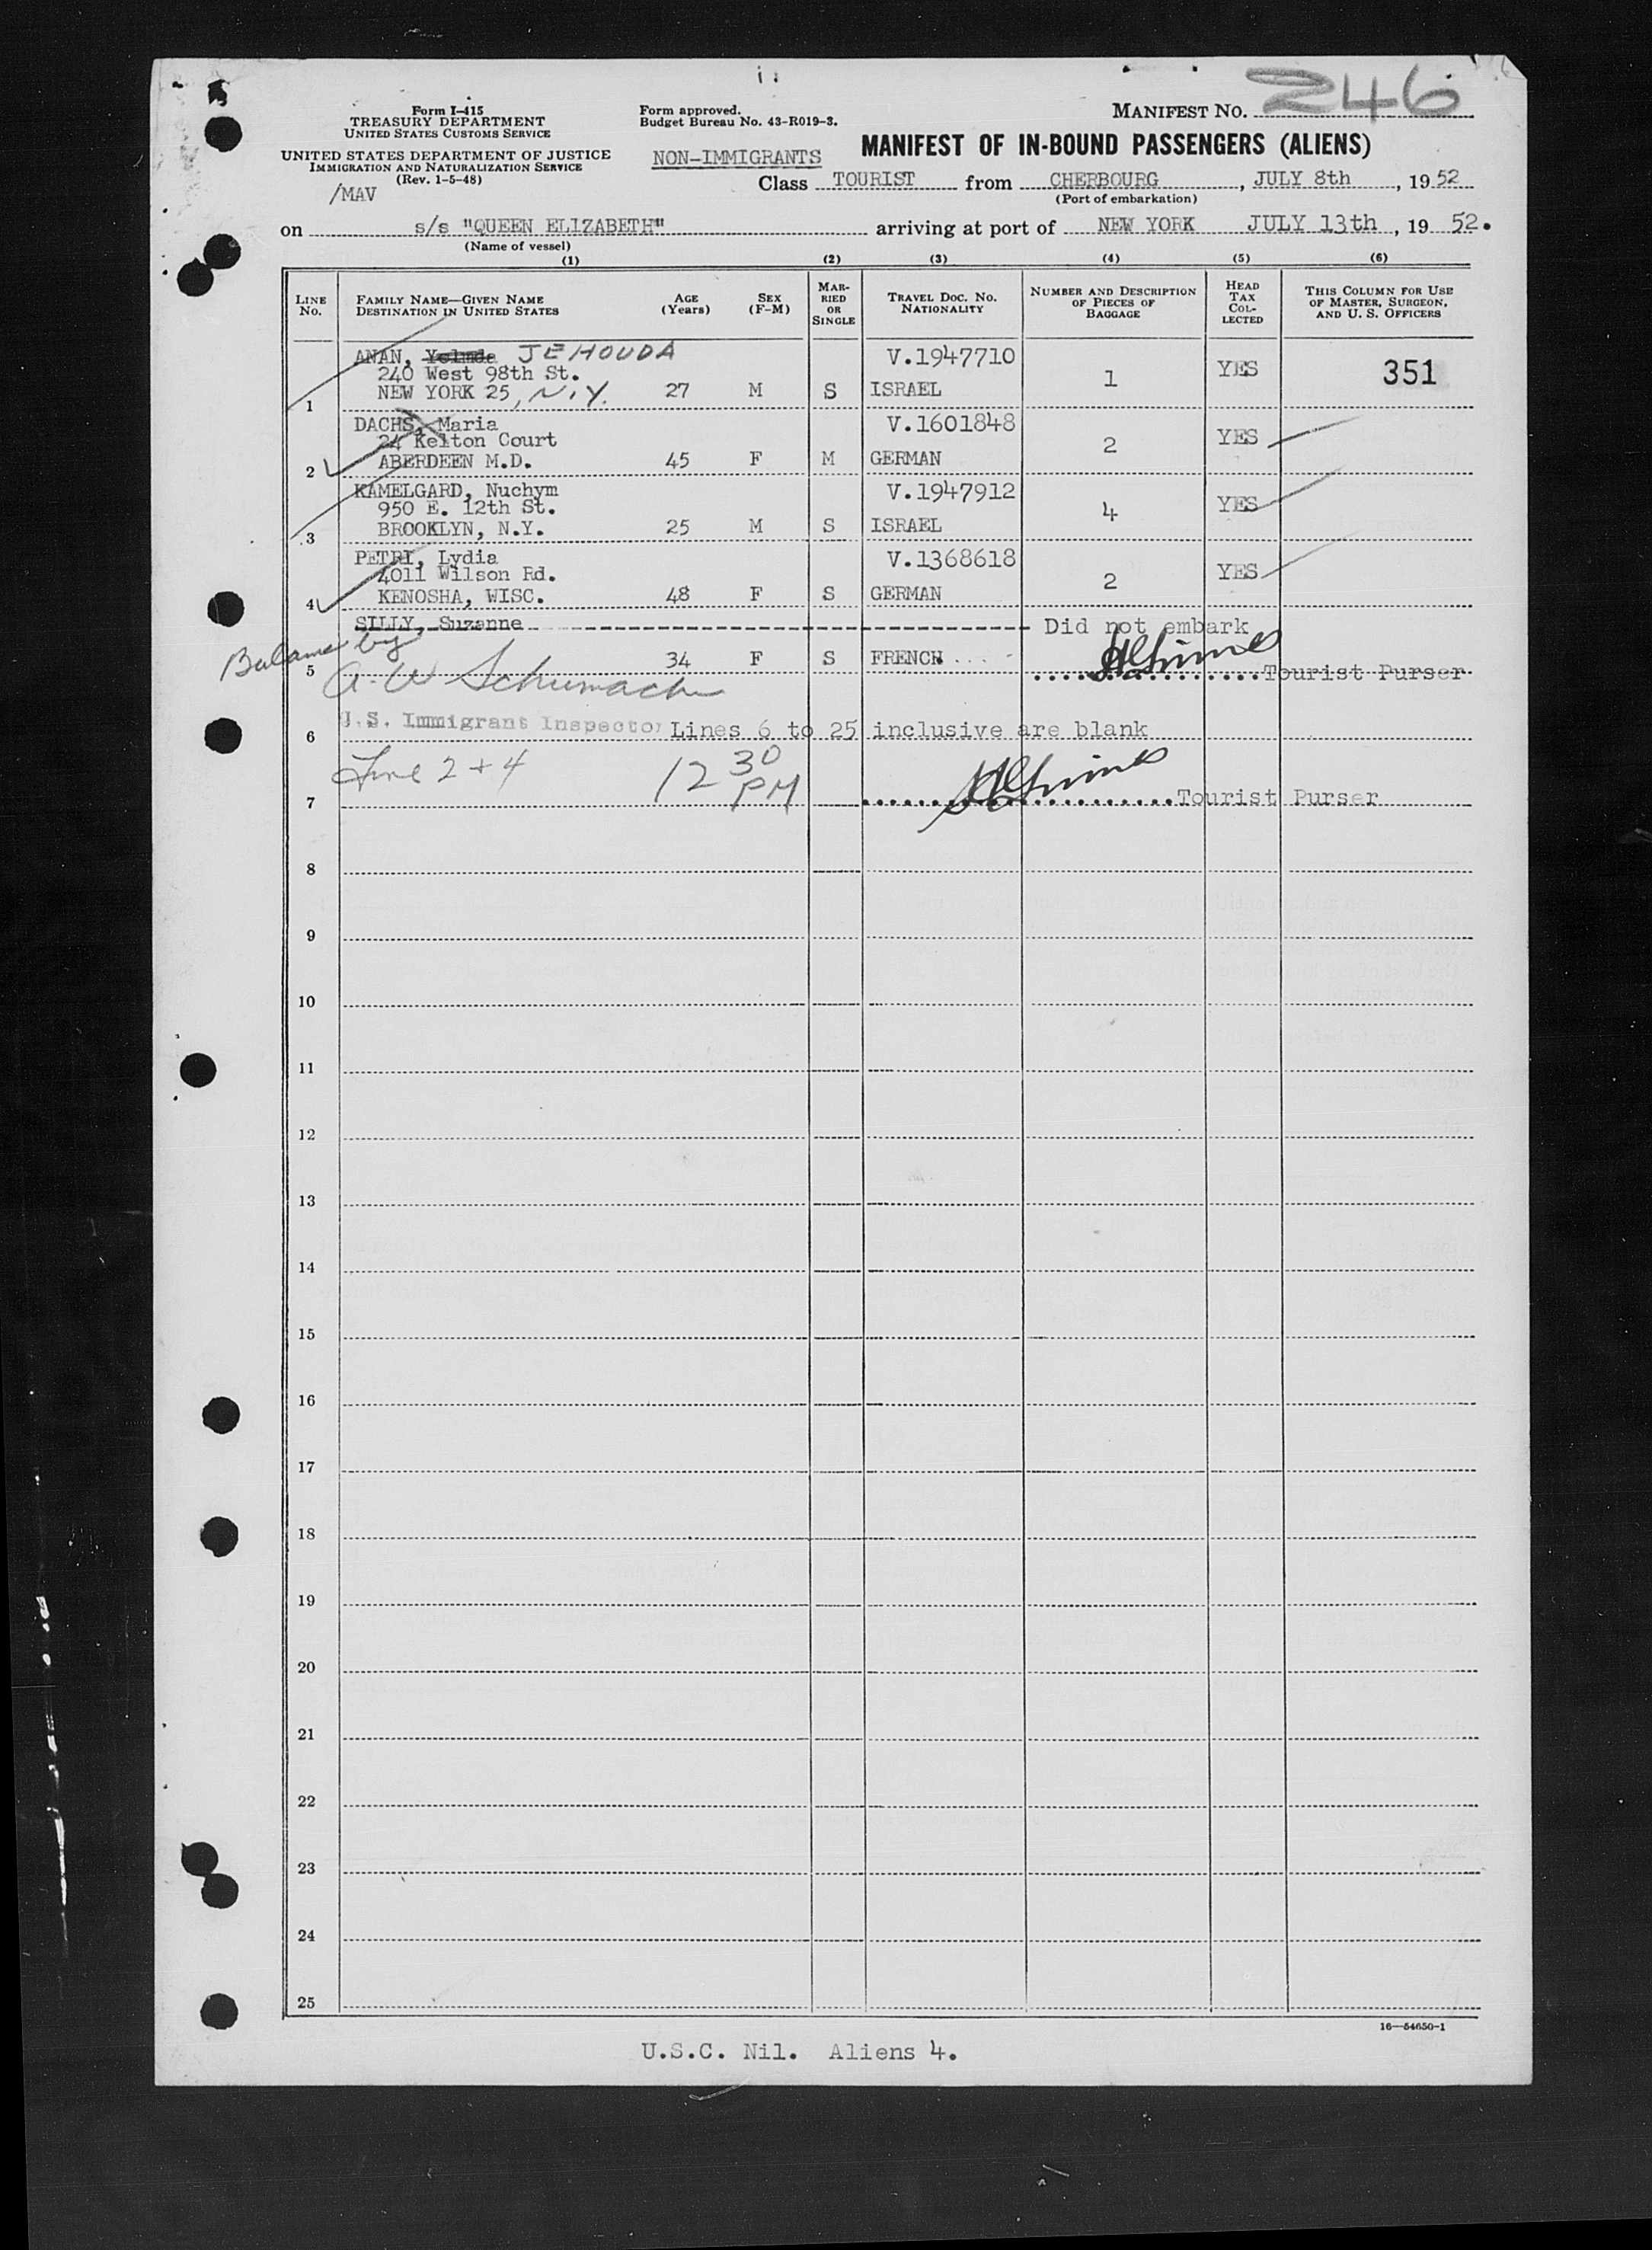 MANIFEST NO. 246
Form I-415
TREASURY DEPARTMENT
UNITED STATES CUSTOMS SERVICE
UNITED STATES DEPARTMENT OF JUSTICE
IMMIGRATION AND NATURALIZATION SERVICE
(Rev. 1-5-48)
/MAV
Form approved.
Budget Bureau No. 43-R019-3.
NON-IMMIGRANTS
MANIFEST OF IN-BOUND PASSENGERS (ALIENS)
Class TOURIST from CHERBOURG, JULY 8th, 1952
(Port of embarkation)
on s/s "QUEEN ELIZABETH" arriving at port of NEW YORK JULY 13th, 1952.
(Name of vessel)
(1) (2) (3) (4) (5) (6)
LINE No.
FAMILY NAME—GIVEN NAME
DESTINATION IN UNITED STATES
AGE (Years)
SEX (F-M)
MARRIED OR SINGLE
TRAVEL DOC. NO. NATIONALITY
NUMBER AND DESCRIPTION OF PIECES OF BAGGAGE
HEAD TAX COLLECTED
THIS COLUMN FOR USE OF MASTER, SURGEON, AND U. S. OFFICERS
ANAN, JEHOUDA V.1947710
240 West 98th St. 1 YES 351
1 NEW YORK 25, N.Y. 27 M S ISRAEL
DACHS, Maria V.1601848
24 Kelton Court 2 YES
2 ABERDEEN M.D. 45 F M GERMAN
KAMELGARD, Nuchym V.1947912
950 E. 12th St. 4 YES
3 BROOKLYN, N.Y. 25 M S ISRAEL
PETRI, Lydia V.1368618
4011 Wilson Rd. 2 YES
4 KENOSHA, WISC. 48 F S GERMAN
SILLY, Suzanne Did not embark
Balance by
5 34 F S FRENCH Tourist Purser
A. W Schumacher
U.S. Immigrant Inspector
6 Lines 6 to 25 inclusive are blank
Line 2 + 4 12 30 PM
7 Tourist Purser
8
9
10
11
12
13
14
15
16
17
18
19
20
21
22
23
24
25
16—54650-1
U.S.C. Nil. Aliens 4.